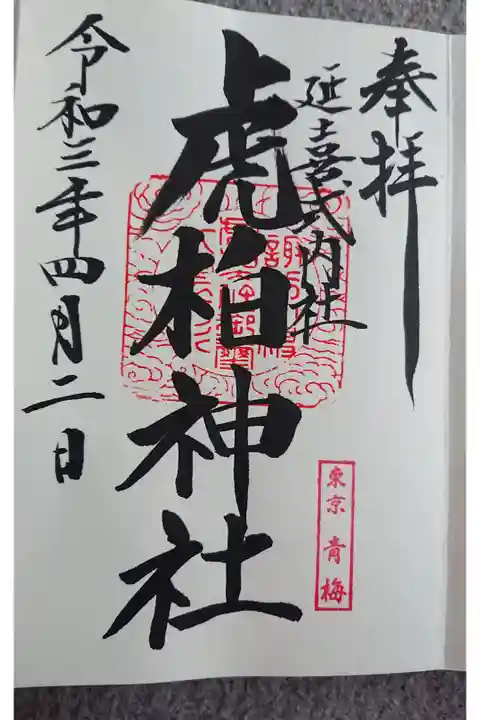 奉拝
延喜式内社
虎柏神社
東京 青梅
令和三年四月二日